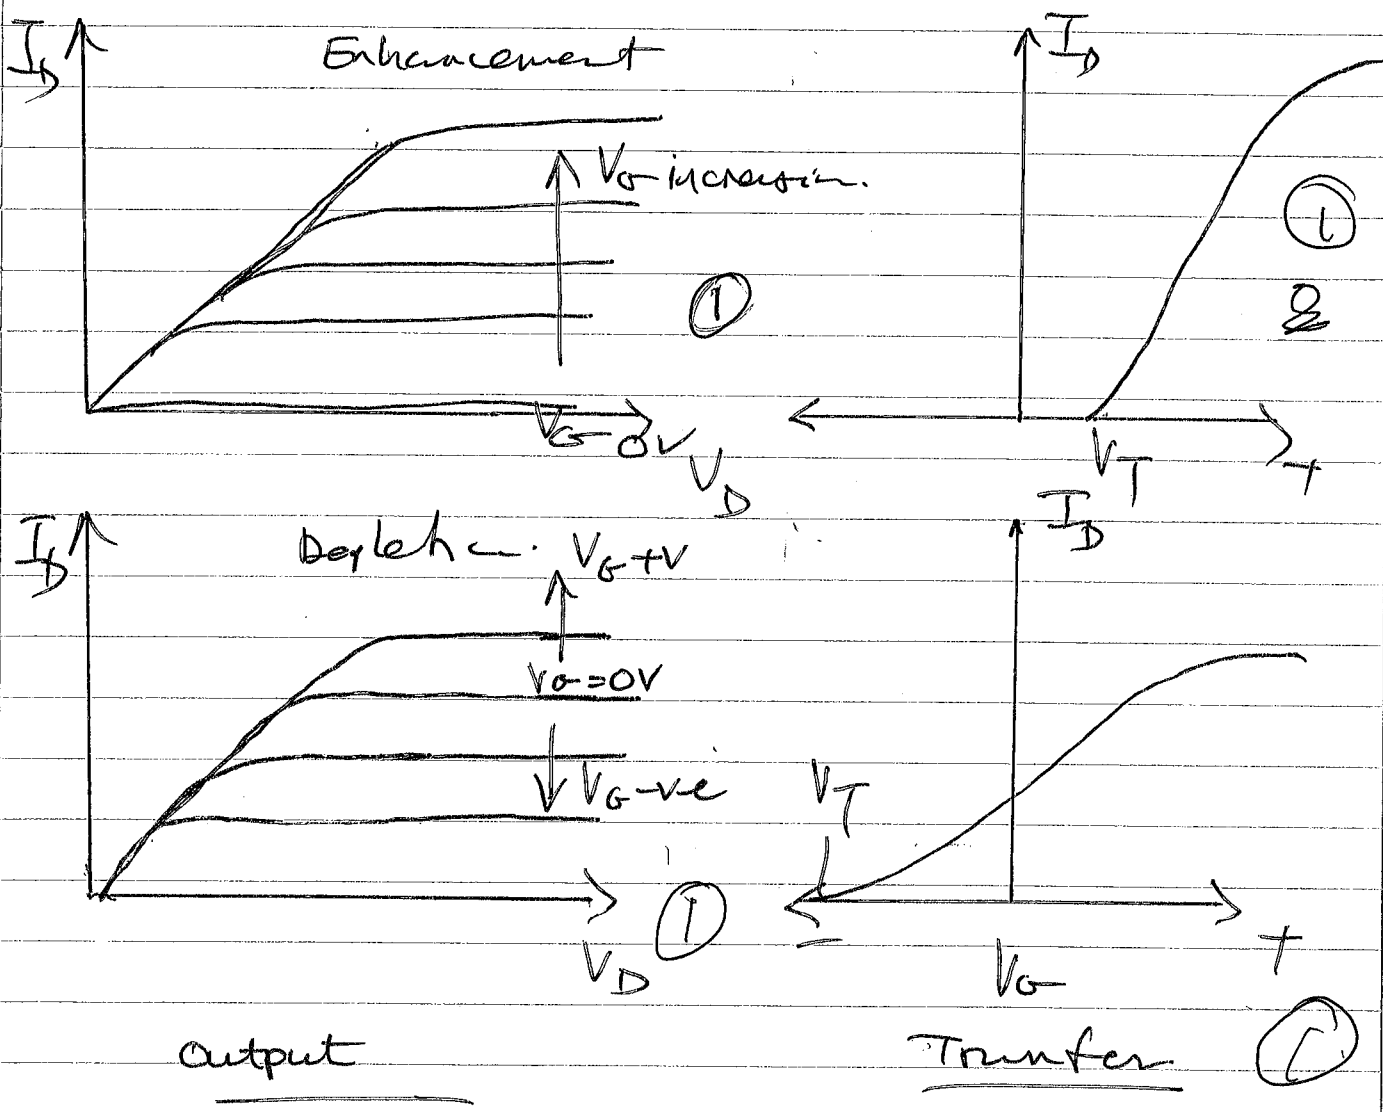 I_D
Enhancement
I_D
V_G increasin.
1
1
2
V_G=0V
V_D
V_T
+
I_D
Depletion.
V_G+V
I_D
V_G=0V
V_G-ve
V_T
1
V_D
-
V_G
+
Output
Transfer
1